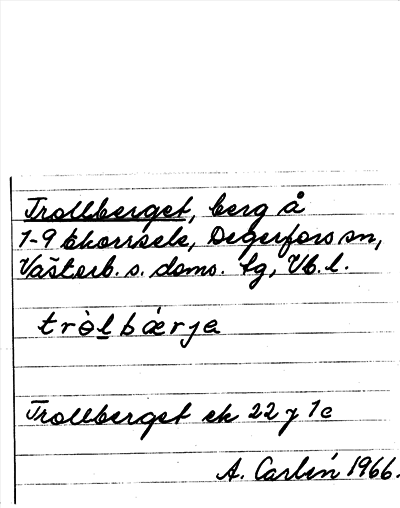 Trollberget, berg å
1-9 Ekorrsele, Degerfors sn,
Västerb. s. doms. tg, Vb. l.
tròlbǽrja
Trollberget ek 22 y 1c
A. Carlén 1966.